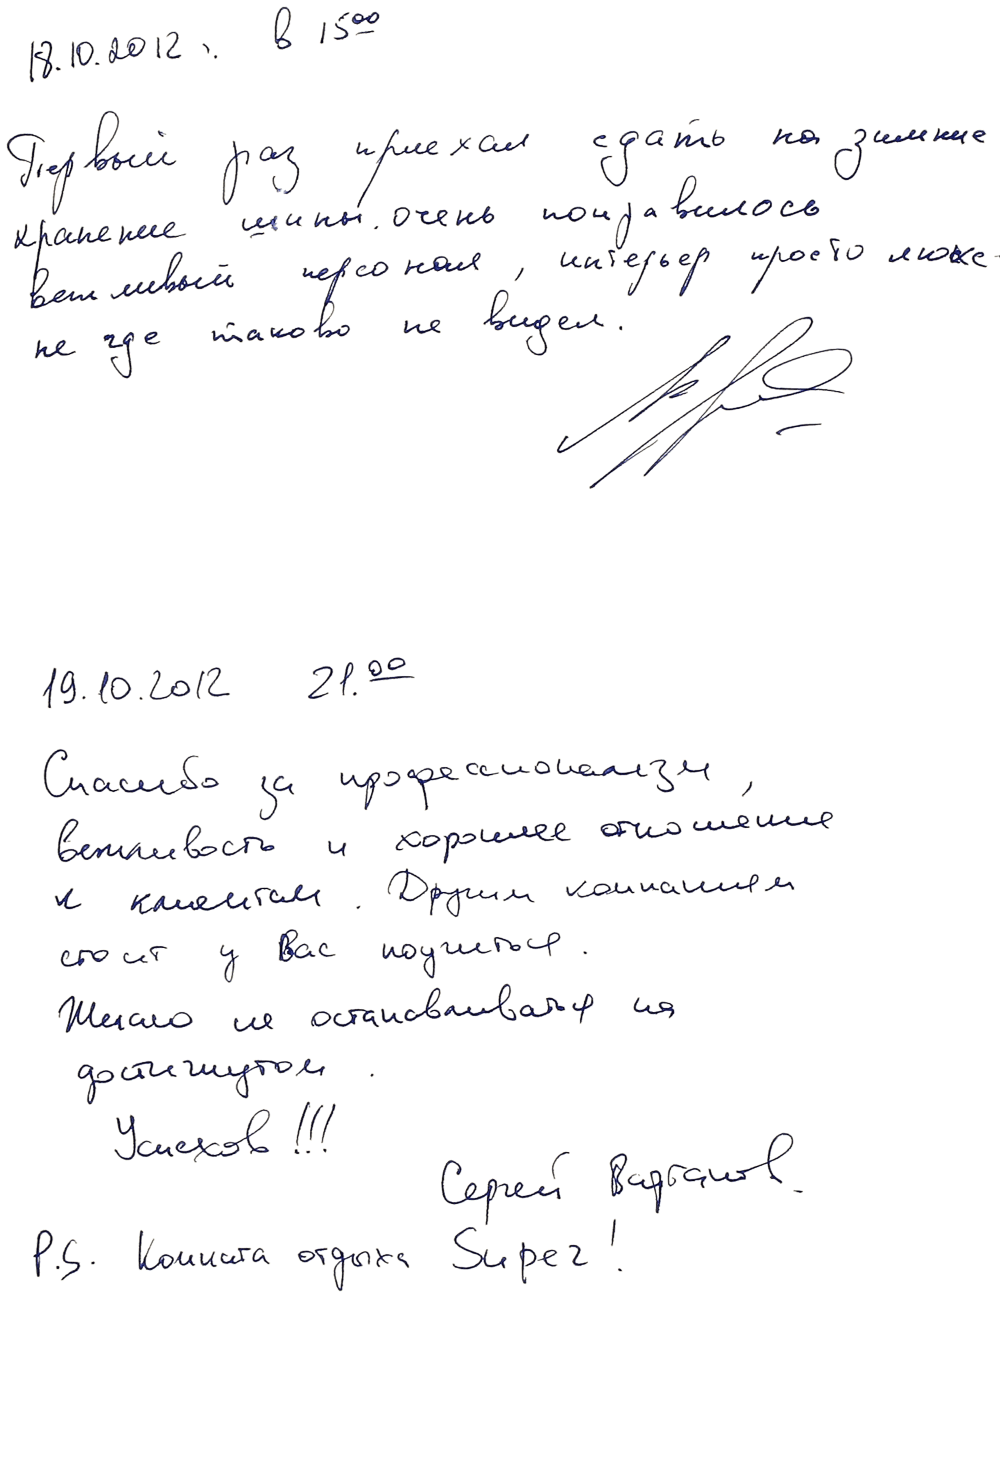 18.10.2012 г. в 15⁰⁰
Первый раз приехал сдать на зимние
хранение шины. очень понравилось
вежливый персонал, интерьер просто люкс-
не где таково не видел.
19.10.2012 21.⁰⁰
Спасибо за профессионализм,
вежливость и хорошее отношение
к клиентам. Другим компаниям
стоит у Вас поучиться.
Желаю не останавливаться на
достигнутом.
Успехов!!!
Сергей Вартанов.
P.S. Комната отдыха Super!